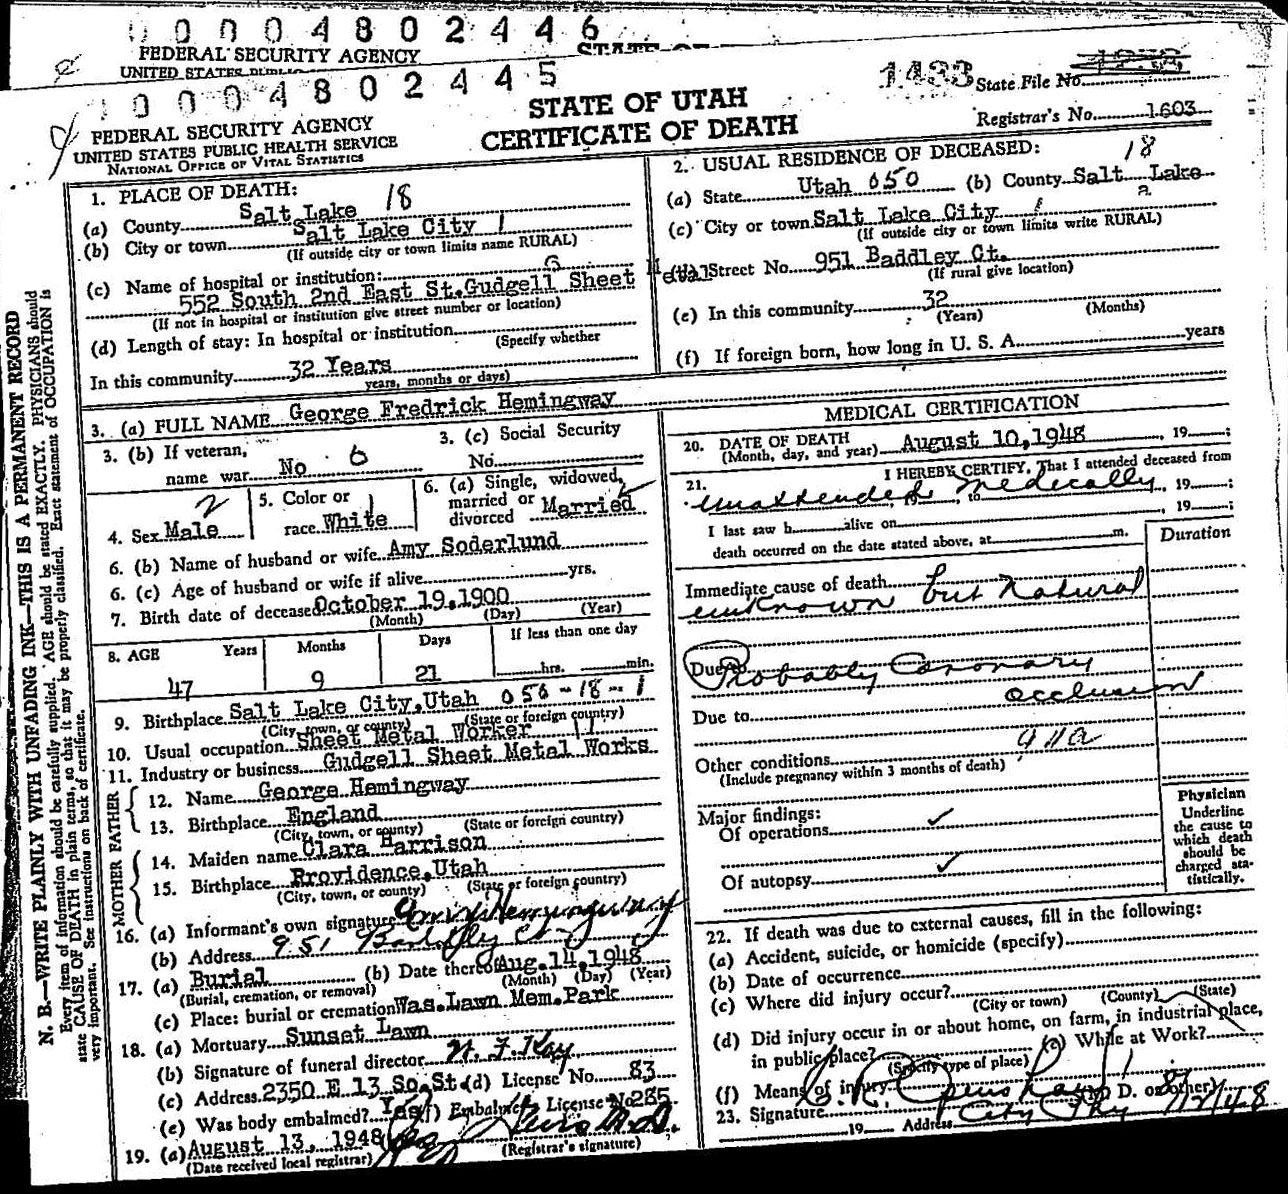 0 0 0 0 4 8 0 2 4 4 6
FEDERAL SECURITY AGENCY
UNITED STATES
0 0 0 4 8 0 2 4 4 5
FEDERAL SECURITY AGENCY
UNITED STATES PUBLIC HEALTH SERVICE
NATIONAL OFFICE OF VITAL STATISTICS
STATE OF UTAH
CERTIFICATE OF DEATH
1433 State File No.
Registrar's No. 1603
N. B.—WRITE PLAINLY WITH UNFADING INK—THIS IS A PERMANENT RECORD
Every item of information should be carefully supplied. AGE should be stated EXACTLY. PHYSICIANS should
state CAUSE OF DEATH in plain terms, so that it may be properly classified. Exact statement of OCCUPATION is
very important. See instructions on back of certificate.
1. PLACE OF DEATH:
(a) County Salt Lake 18
(b) City or town Salt Lake City 1
(If outside city or town limits name RURAL)
(c) Name of hospital or institution:
552 South 2nd East St. Gudgell Sheet Metal
(If not in hospital or institution give street number or location)
(d) Length of stay: In hospital or institution
(Specify whether
In this community 32 Years
years, months or days)
2. USUAL RESIDENCE OF DECEASED: 18
(a) State Utah 050 (b) County Salt Lake
(c) City or town Salt Lake City 1
(If outside city or town limits write RURAL)
Street No. 951 Baddley Ct.
(If rural give location)
(e) In this community 32
(Years) (Months)
(f) If foreign born, how long in U. S. A. years
3. (a) FULL NAME George Fredrick Hemingway
3. (b) If veteran,
name war No 6
3. (c) Social Security
No.
4. Sex Male 2
5. Color or
race White 1
6. (a) Single, widowed,
married or
divorced Married
6. (b) Name of husband or wife Amy Soderlund
6. (c) Age of husband or wife if alive yrs.
7. Birth date of deceased October 19, 1900
(Month) (Day) (Year)
8. AGE Years Months Days If less than one day
47 9 21 hrs. min.
9. Birthplace Salt Lake City, Utah 050-18-1
(City, town, or county) (State or foreign country)
10. Usual occupation Sheet Metal Worker
11. Industry or business Gudgell Sheet Metal Works
FATHER
12. Name George Hemingway
13. Birthplace England
(City, town, or county) (State or foreign country)
MOTHER
14. Maiden name Clara Harrison
15. Birthplace Providence, Utah
(City, town, or county) (State or foreign country)
16. (a) Informant's own signature Hemingway
(b) Address 951 Baddley Ct
17. (a) Burial (b) Date thereof Aug. 14, 1948
(Burial, cremation, or removal) (Month) (Day) (Year)
(c) Place: burial or cremation Was. Lawn Mem. Park
18. (a) Mortuary Sunset Lawn
(b) Signature of funeral director
(c) Address 2350 E 13 So. St. (d) License No. 83
(e) Was body embalmed? Yes (f) Embalmer License No. 285
19. (a) August 13, 1948
(Date received local registrar) (Registrar's signature)
MEDICAL CERTIFICATION
20. DATE OF DEATH
(Month, day, and year) August 10, 1948, 19 ;
21. I HEREBY CERTIFY, That I attended deceased from
unattended, 19 , to medically, 19 ;
I last saw h alive on , 19 ;
death occurred on the date stated above, at m.
Duration
Immediate cause of death
unknown but Natural
Due to Probably Coronary
occlusion
Due to
Other conditions
(Include pregnancy within 3 months of death)
Major findings:
Of operations
Of autopsy
Physician
Underline
the cause to
which death
should be
charged sta-
tistically.
22. If death was due to external causes, fill in the following:
(a) Accident, suicide, or homicide (specify)
(b) Date of occurrence
(c) Where did injury occur?
(City or town) (County) (State)
(d) Did injury occur in or about home, on farm, in industrial place,
in public place? (e) While at Work?
(Specify type of place)
(f) Means of injury
23. Signature (M. D. or other)
19 Address City 8/12/48